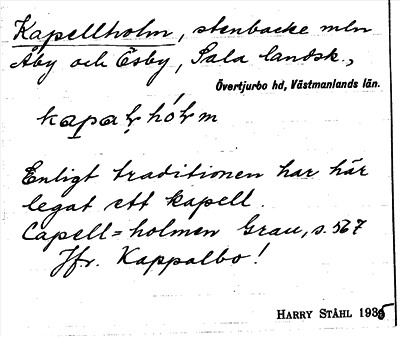 Kapellholm, stenbacke mln
Åby och Ösby, Sala landsk.,
Övertjurbo hd, Västmanlands län.
kapaḷ hóḷm
Enligt traditionen har här
legat ett kapell.
Capell=holmen Grau, s. 567
Jfr. Kappalbo!
HARRY STÅHL 1935